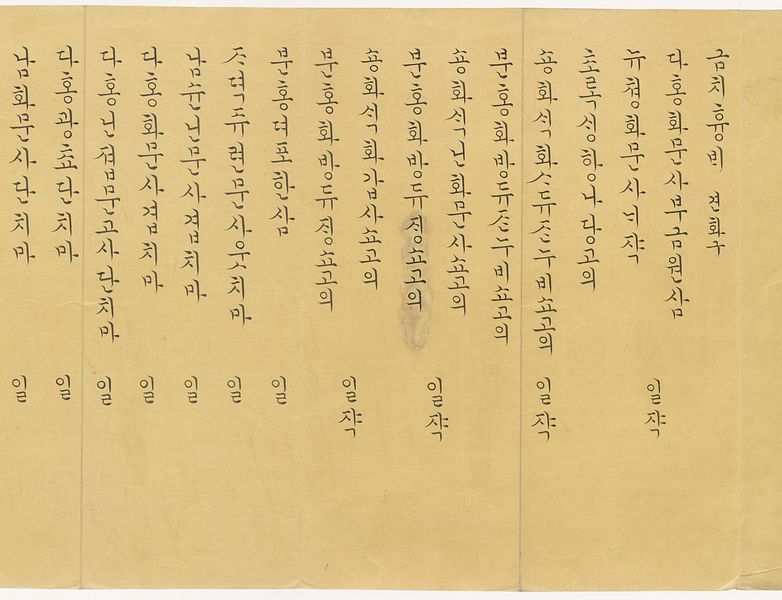 금치흉ᄇᆡ 견화구
다홍화문사부금원삼
뉴쳥화문사ᄂᆡ쟉
일쟉
초록ᄉᆡᆼ항나당고의
숑화ᄉᆡᆨ화ᄉᆞ듀ᄉᆞᆫ두비쇼고의 일쟉
분홍화방듀ᄉᆞᆫ두비쇼고의
숑화ᄉᆡᆨ닌화문사쇼고의
분홍화방듀졍쇼고의
일쟉
숑화ᄉᆡᆨ화갑사쇼고의
분홍화방듀졍쇼고의
일쟉
분홍뎌포한삼 일
ᄌᆞ뎍듀련문사웃치마 일
남슌닌문사겹치마 일
다홍화문사겹치마 일
다홍닌졉문고사단치마 일
다홍광쵸단치마 일
남화문사단치마 일